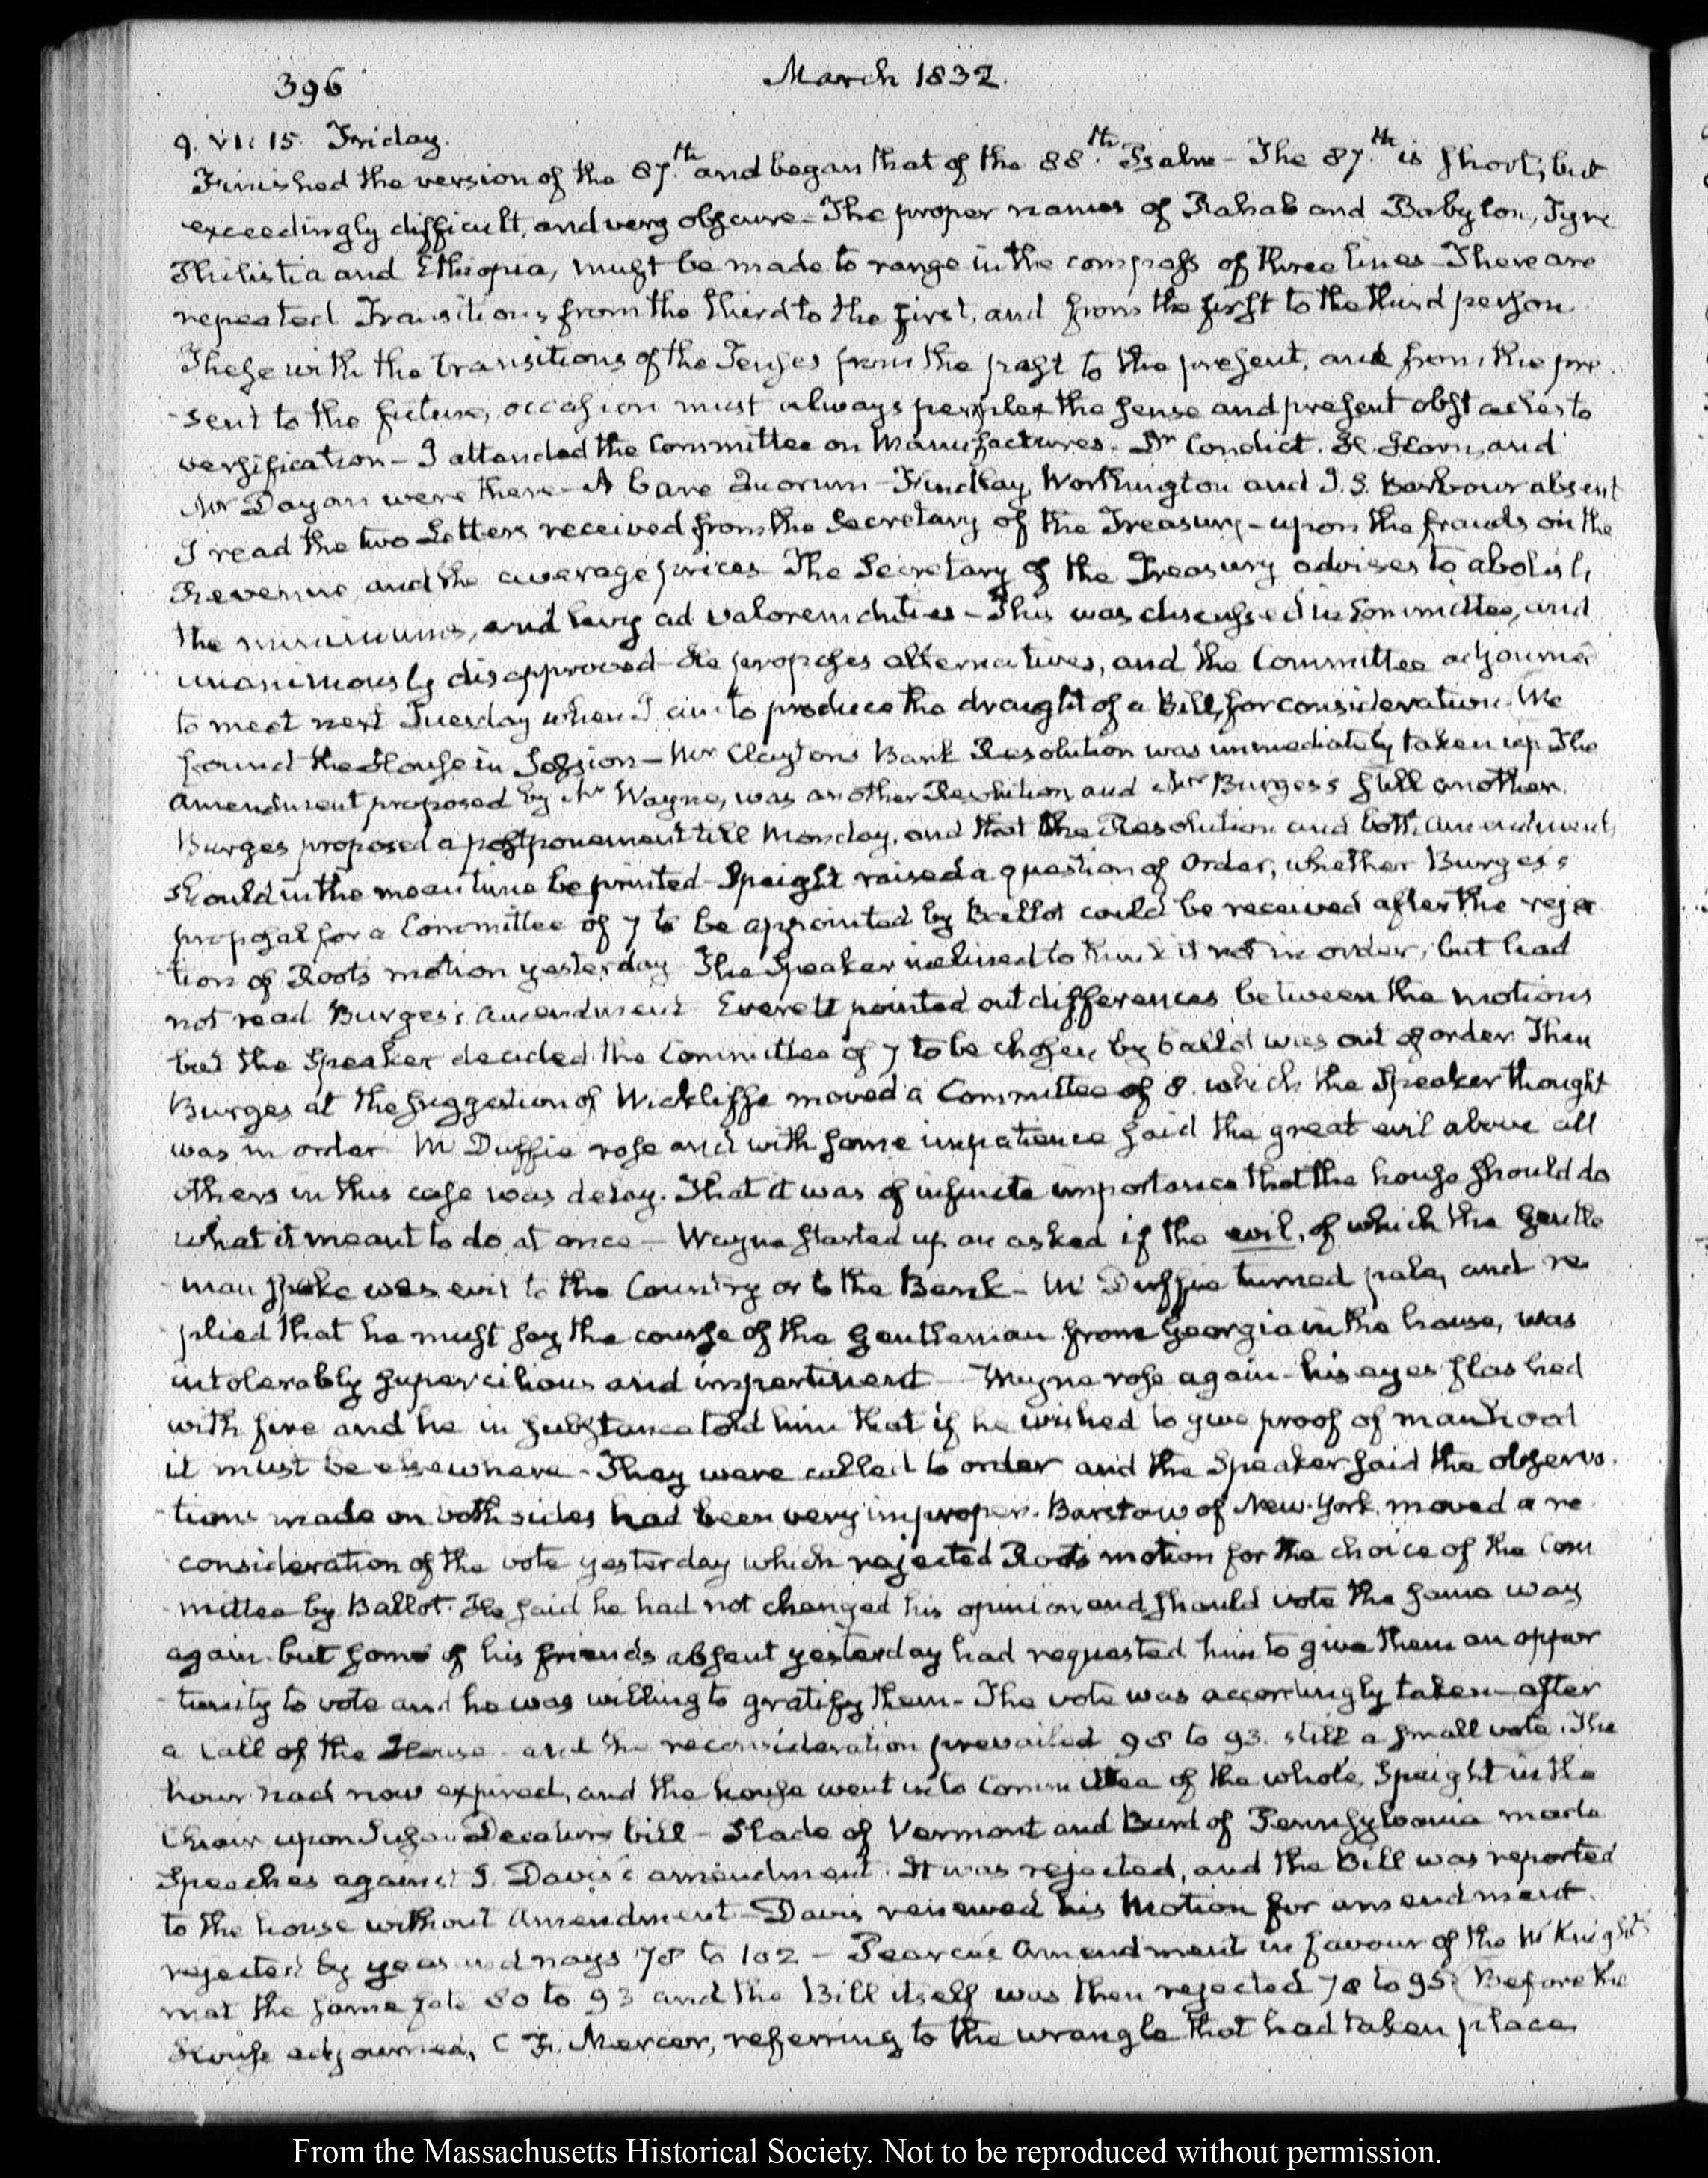 396
March 1832.
9. VI: 15. Friday.
Finished the version of the 87.th and began that of the 88.th Psalm - The 87.th is short; but
exceedingly difficult, and very obscure - The proper names of Rahab and Babylon, Tyre
Philistia and Ethiopia, must be made to range in the compass of three lines - There are
repeated Transitions from the third to the first, and from the first to the third person
These with the transitions of the Tenses from the past to the present, and from the pre
-sent to the future, occasion must always perplex the sense and present obstacles to
versification - I attended the Committee on Manufactures. Dr Condict. H. Horn, and
Mr Dayan were there - A bare Quorum - Findlay, Worthington and J. S. Barbour absent
I read the two Letters received from the Secretary of the Treasury - upon the frauds on the
Revenue, and the average prices The Secretary of the Treasury advises to abolish
the minimums, and levy ad valorem duties - This was discussed in Committee, and
unanimously disapproved - He proposes alternatives, and the Committee adjourned
to meet next Tuesday when I am to produce the draught of a Bill, for consideration. We
found the House in Session - Mr Claytons Bank Resolution was immediately taken up The
amendment proposed by Mr Wayne, was another Resolution, and Mr Burges's still another.
Burges proposed a postponement till Monday, and that the Resolution and both amendments
should in the mean time be printed - Speight raised a question of Order, whether Burges's
proposal for a Committee of 7 to be appointed by Ballot could be received after the rejec
tion of Roots motion yesterday The Speaker inclined to think it not in order, but had
not read Burges's amendment Everett pointed out differences between the motions
but the Speaker decided the Committee of 7 to be chosen by ballot was out of order Then
Burges at the suggestion of Wickliffe moved a Committee of 8. which the Speaker thought
was in order McDuffie rose and with some impatience said the great evil above all
others in this case was delay. That it was of infinite importance that the house should do
what it meant to do at once - Wayne started up an asked if the evil, of which the Gentle
-man spoke was evil to the Country or to the Bank - McDuffie turned pale, and re
plied that he must say the course of the Gentleman from Georgia in the house, was
intolerably supercilious and impertinent - Wayne rose again - his eyes flashed
with fire and he in substance told him that if he wished to give proof of manhood
it must be elsewhere - They were called to order and the Speaker said the observa.
-tions made on both sides had been very improper. Barstow of New-York moved a re
consideration of the vote yesterday which rejected Roots motion for the choice of the Com
-mittee by Ballot. He said he had not changed his opinion and should vote the same way
again but some of his friends absent yesterday had requested him to give them an oppor
-tunity to vote and he was willing to gratify them - The vote was accordingly taken - after
a Call of the House - and the reconsideration prevailed 98 to 93. still a small vote. The
hour had now expired, and the house went into Committee of the whole, Speight in the
Chair upon Susan Decaturs bill - Slade of Vermont and Burd of Pennsylvania made
Speeches against J. Davis's amendment. It was rejected, and the Bill was reported
to the house without Amendment - Davis renewed his Motion for amendment.
rejected by yeas and nays 78 to 102 - Pearce's Amendment in favour of the McKnights
met the same fate 80 to 93 and the Bill itself was then rejected 78 to 95. Before the
House adjourned, C F. Mercer, referring to the wrangle that had taken place
From the Massachusetts Historical Society. Not to be reproduced without permission.